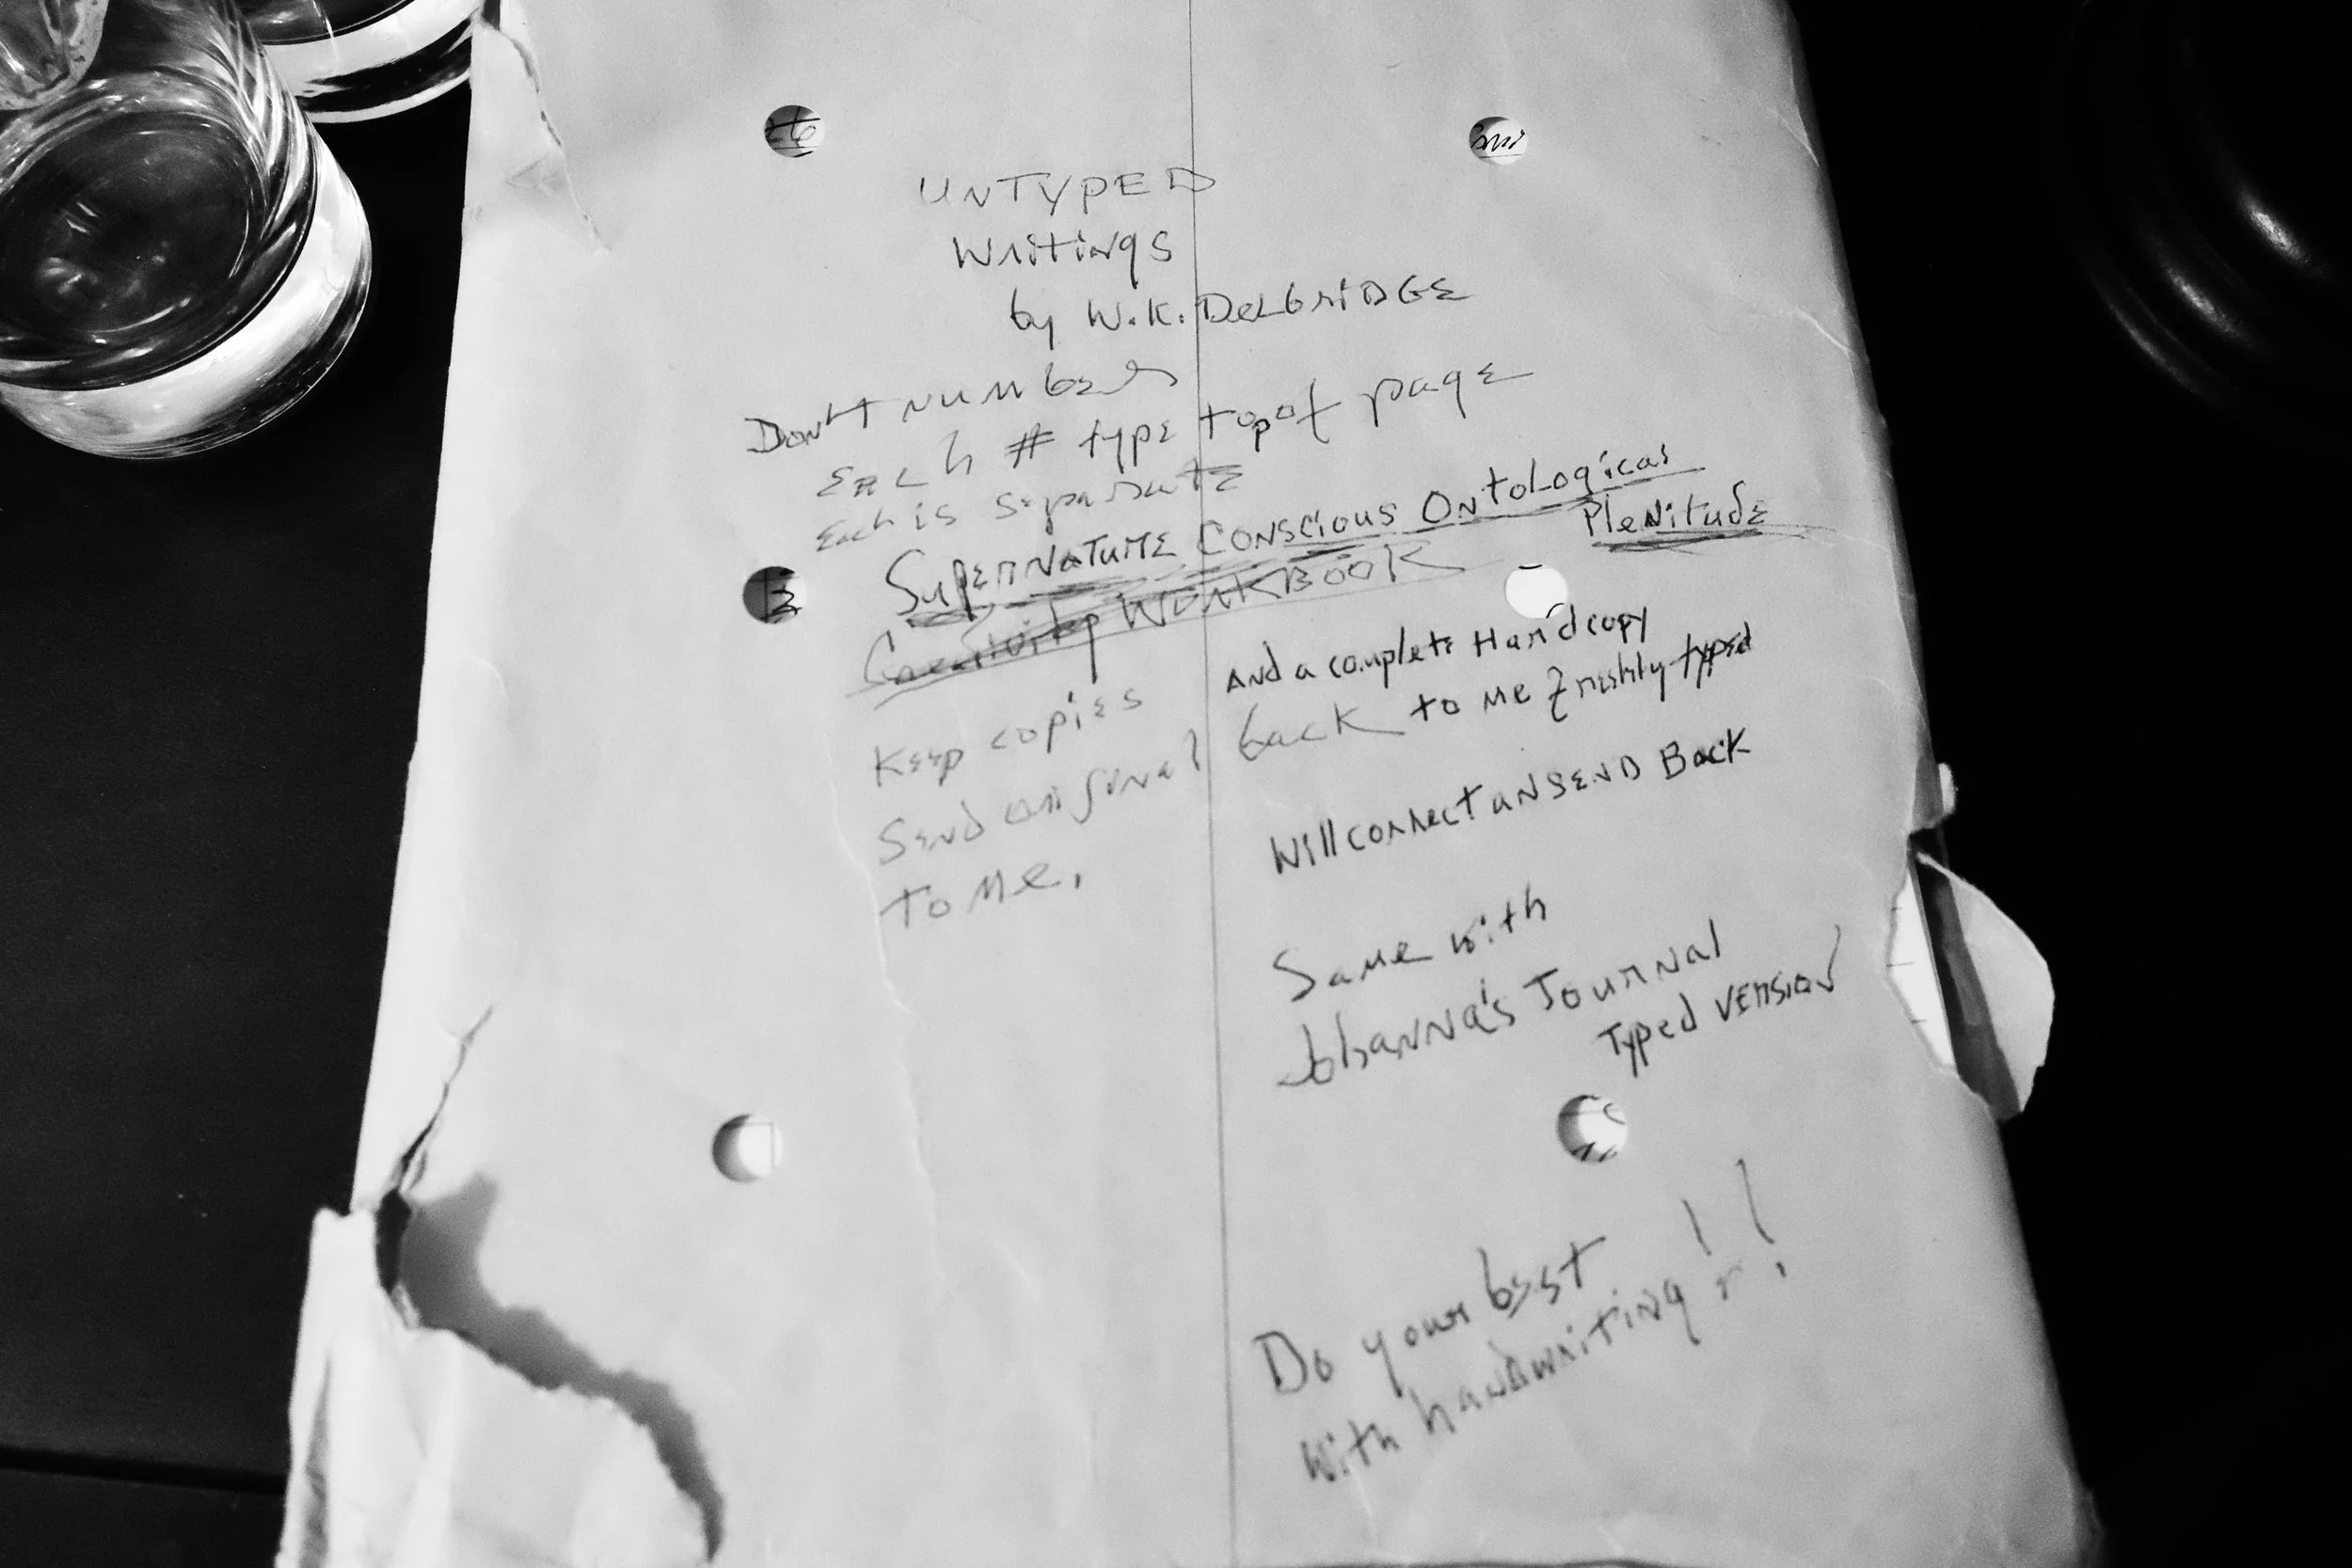 UNTYPED
Writings
by W.K. DELbriDGE
Don't numbers
EACh # type top of page
Each is separate
SupERNATURE CONSCIOUS ONtoLogical
PleNitude
Creativity WorkBOOK
Keep copies
And a complete Hardcopy
Send original back to me typed
To Me.
Will correct an SEND Back
Same with
Johanna's Journal
Typed VERSION
Do your best
with handwriting!!